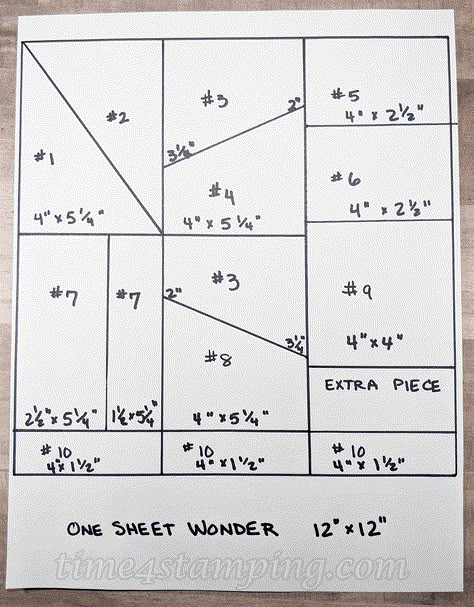 #1
4" x 5 1/4"
#2
#3
2"
3 1/4"
#4
4" x 5 1/4"
#5
4" x 2 1/2"
#6
4" x 2 1/2"
#7
2 1/2" x 5 1/4"
#7
1 1/2 x 5 1/4
#3
2"
3 1/4"
#8
4" x 5 1/4"
#9
4" x 4"
EXTRA PIECE
#10
4" x 1 1/2"
#10
4" x 1 1/2"
#10
4" x 1 1/2"
ONE SHEET WONDER 12" x 12"
time4stamping.com